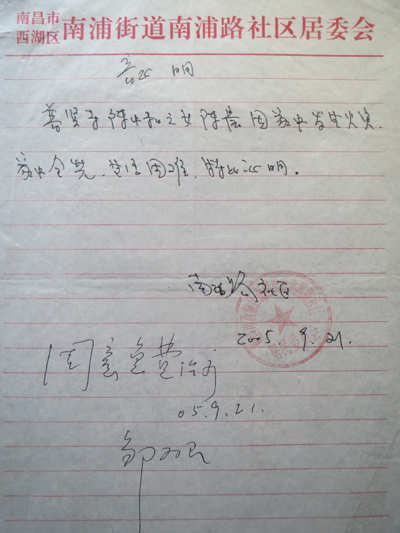 南昌市
西湖区 南浦街道南浦路社区居委会
证明
陈中和之女陈晨因家中发生火灾,
家中全烧,生活困难,特此证明。
南浦路社区
2005.9.21.
同意免费治疗
05.9.21.